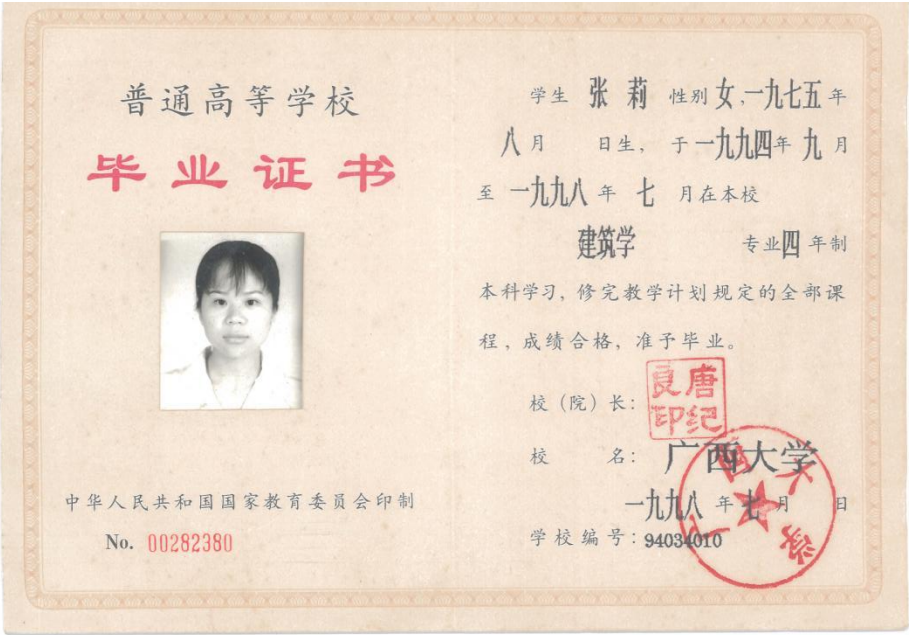 普通高等学校
毕业证书
中华人民共和国国家教育委员会印制
No. 00282380
学生 张莉 性别 女,一九七五年
八月 日生, 于一九九四年九月
至一九九八年七月在本校
建筑学 专业四年制
本科学习, 修完教学计划规定的全部课
程, 成绩合格, 准予毕业。
校(院)长: 唐纪良印
校 名: 广西大学
一九九八年七月 日
学校编号: 94034010
广西大学